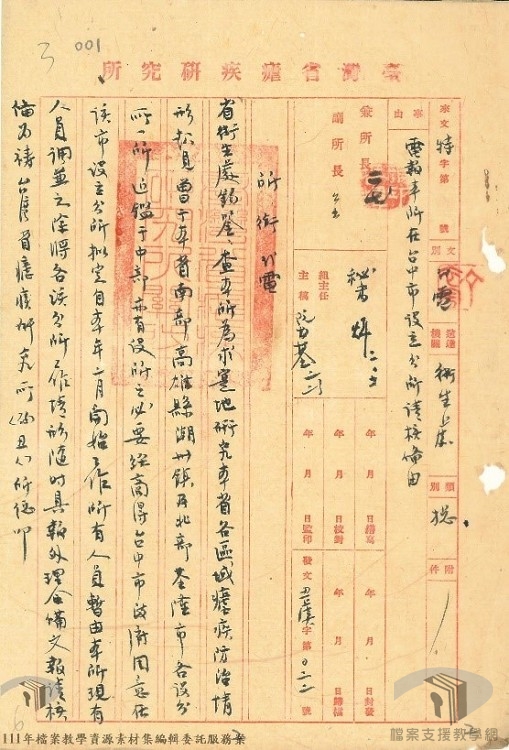 001
臺灣省瘧疾研究所
來文 特 字第 號
事由
電報本所在台中市設立分所請核備由
文別 代電
送達機關 衛生處
類別 總
附件
兼所長
副所長
總主任
主稿
秘書
年 月 日繕寫
年 月 日校對
年 月 日監印
年 月 日封發
年 月 日歸檔
發文 字第 號
所銜代電
省衛生處鈞鑒、查本所為求實地研究本省各區域瘧疾防治情
形起見曾于本省南部高雄縣潮州鎮及北部基隆市各設分
所一所近鑑于中部亦有設所之必要經商得台中市政府同意在
該市設立分所擬定自本年二月開始工作所有人員暫由本所現有
人員調兼之除將各該分所工作情形隨時具報外理合備文報請核
備為禱台灣省瘧疾研究所 所 叩
111年檔案教學資源素材集編輯委託服務案
檔案支援教學網